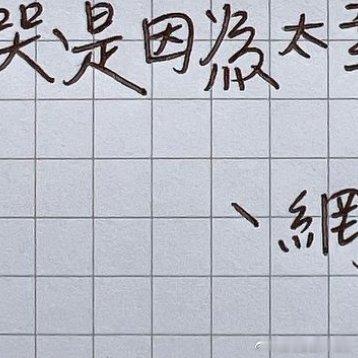 哭是因為太
、網